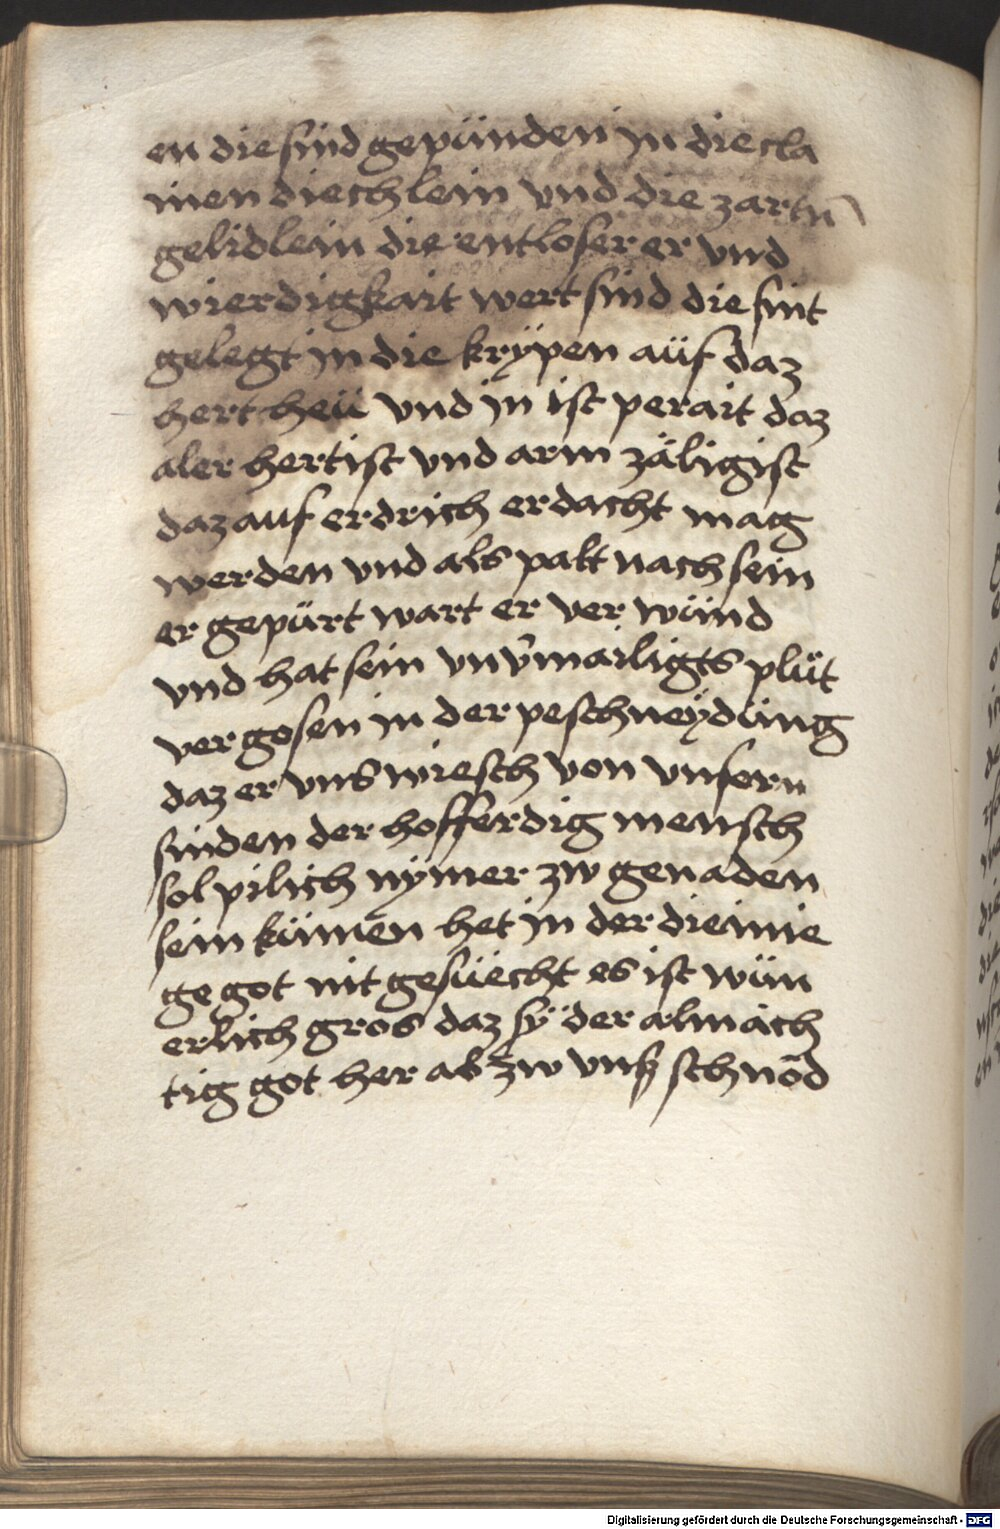 en die sind gepünden jn die cla
inen diechlein vnd die zartn
gelidlein die entloser er vnd
wierdigkait wert sind die sint
gelegt jn die krÿpen aüf daz
hert heü vnd jn ist perait daz
aler hertist vnd arm zäligist
daz auf erdrich erdacht mag
werden vnd als palt nach sein
er gepürt wart er ver wünd
vnd hat sein vnv̄mailigts plüt
ver gosen jn der peschneÿdüng
daz er vns wiesch von vnsern
sinden der hofferdig mensch
sol pilich nÿmer zw genaden
sein kümen het jn der dieinie
ge got nit gesüecht es ist wün
erlich gros daz sÿ der almäch
tig got her ab zw vnß schnöd
Digitalisierung gefördert durch die Deutsche Forschungsgemeinschaft - DFG